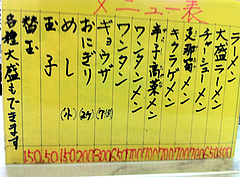 メニュー表
ラーメン
大盛ラーメン
チャーシューメン
支那筍メン
キクラゲメン 700
辛子高菜メン 700
ワンタンメン 700
ワンタン
ギョウザ 300
おにぎり (2ケ) 200
めし (小) 150
玉子 50
替玉 150
各種大盛もできます